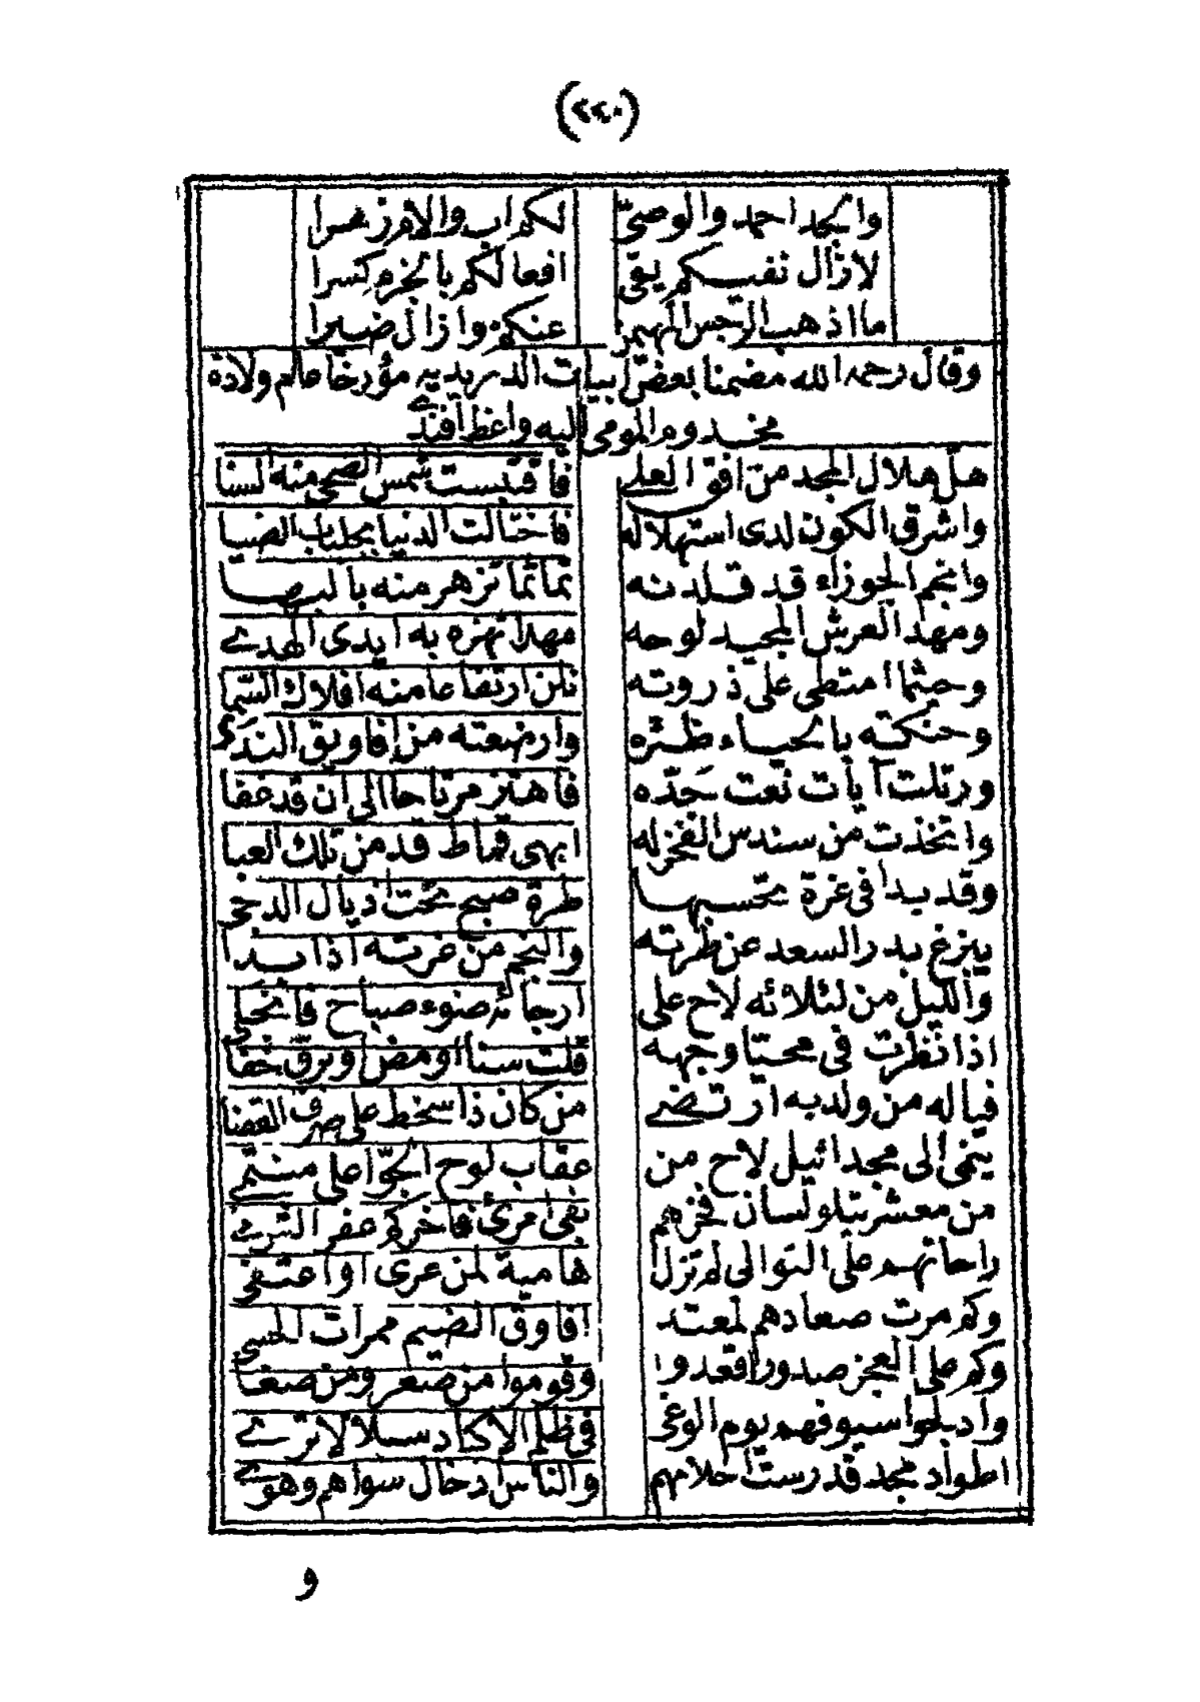 (٢٢٠)
والجد احمد والوصيّ لكم اب والام زهرا
لازال نفسكم يقى افعالكم بالجزم كسرا
ما اذهب الرجس المهيمن عنكم وازال ضيرا
وقال رحمه الله مضمنا بعض ابيات الدريديه مؤرخا عام ولادة
مخدوم المومى اليه واعظ افندى
هل هلال المجد من افق العلى فاقتبست شمس الضحى منه السنا
واشرق الكون لدى استهلاله فاختالت الدنيا بجلباب الضيا
وانجم الجوزاء قد قلدنه تمائما تزهر منه بالبصا
ومهد العرش المجيد لوحه مهدا تهزه به ايدى الهدى
وحيثما امتطى على ذروته نلن ارتفاعا منه افلاك السما
وحنكته بالحياء ظئره وارضعته من افاويق الندى
ورتلت آيات نعت جدّه فاهتز مرتاحا الى ان قد غفا
واتخذت من سندس الفخر له ابهى قماط قد من تلك العبا
وقد بدا فى غرة تحسبها طرة صبح تحت اذيال الدجى
يبزغ بدر السعد عن طرته والنجم من غرته اذا بدا
والليل من لئلائه لاح على ارجائه ضوء صباح فانجلى
اذا نظرت فى محيّا وجهه قلت سنا اومض او برق خفا
فياله من ولد به ارتضى من كان ذا سخط على صرف القضا
ينمى الى مجد اثيل لاح من عقاب لوح الجوّ اعلى منتمى
من معشر يتلو لسان فخرهم نفى امرئ فاخركم عفر الثرى
راحاتهم على التوالى لم تزل هامية لمن عرى او اعتفى
وكم مرت صعادهم لمعتد افاوق الضيم ممرات الحسى
وكم على العجز صدورا قعدوا وقوموا من صعر ومن صغا
وادلجوا سيوفهم يوم الوغى فى ظلم الاكباد سبلا لا ترى
اطواد مجد قد رست احلامهم والناس دخال سواهم وهوى
و